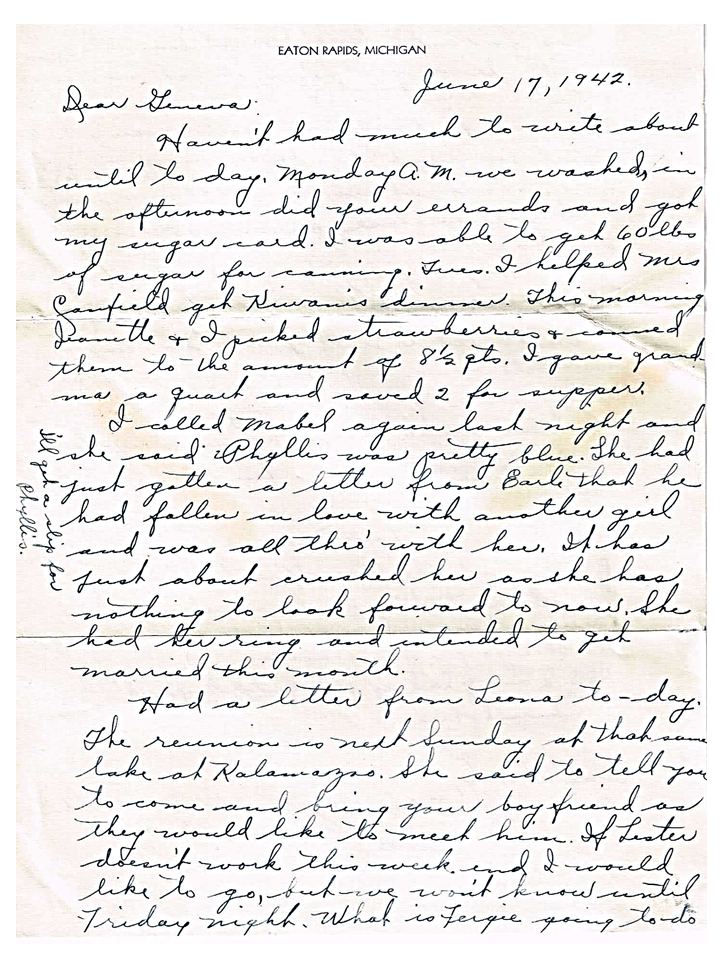 EATON RAPIDS, MICHIGAN
June 17, 1942.
Dear Geneva:
Haven't had much to write about
until to day. Monday A.M. we washed, in
the afternoon did your errands and got
my sugar card. I was able to get 60 lbs
of sugar for canning. Tues. I helped Mrs
Canfield get Kiwanis dinner. This morning
Jeanette & I picked strawberries & canned
them to the amount of 8½ pts. I gave grand
ma a quart and saved 2 for supper.
I called Mabel again last night and
she said Phyllis was pretty blue. She had
just gotten a letter from Earle that he
had fallen in love with another girl
and was all thro' with her. It has
just about crushed her as she has
nothing to look forward to now. She
had her ring and intended to get
married this month.
I'll get a slip for
Phyllis.
Had a letter from Leona to-day.
The reunion is next Sunday at that same
lake at Kalamazoo. She said to tell you
to come and bring your boy friend as
they would like to meet him. If Lester
doesn't work this week end I would
like to go, but we won't know until
Friday night. What is Fergie going to do